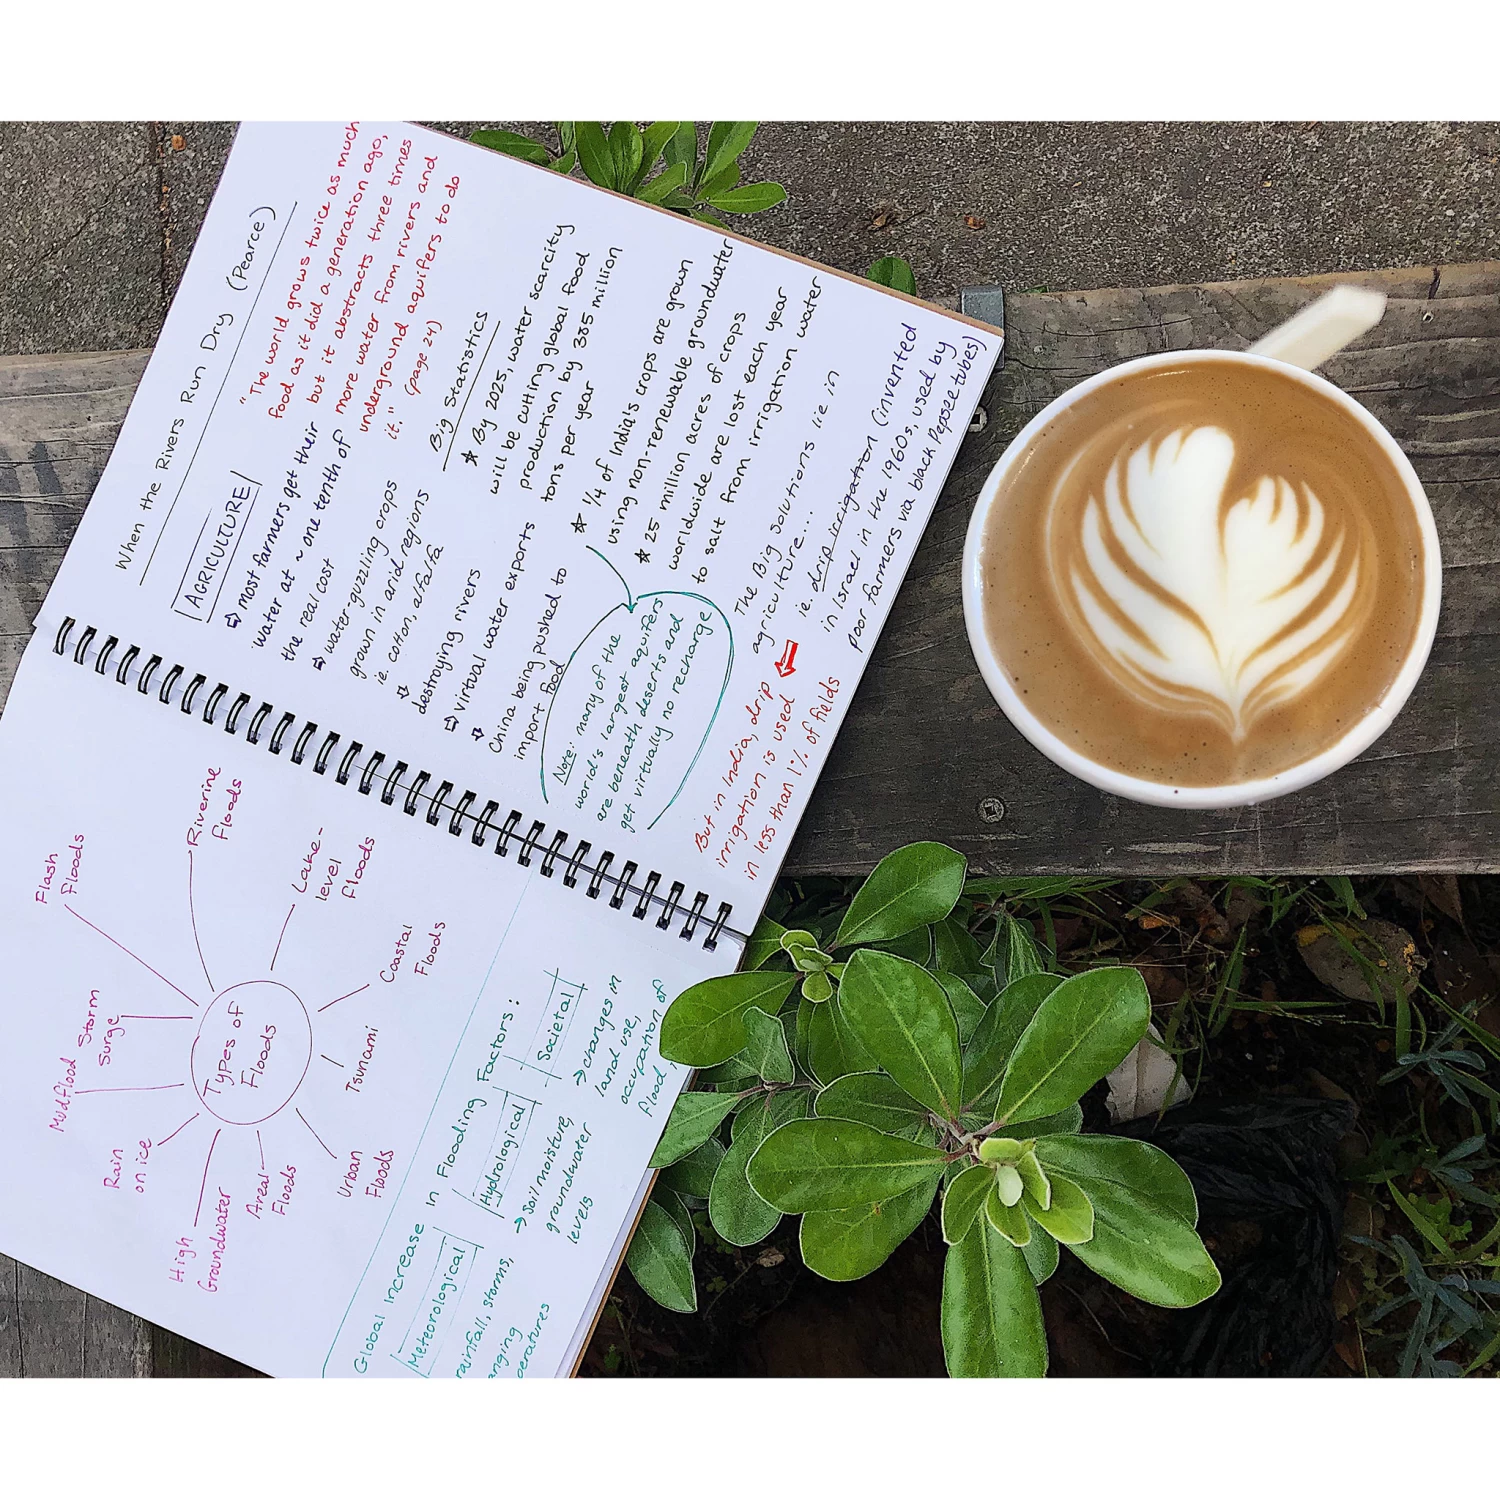 When the Rivers Run Dry (Pearce)
"The world grows twice as much
food as it did a generation ago,
but it abstracts three times
more water from rivers and
underground aquifers to do
it." (page 24)
AGRICULTURE
⇨ most farmers get their
water at ~ one tenth of
the real cost
⇨ water-guzzling crops
grown in arid regions
ie. cotton, alfalfa
⇨ destroying rivers
⇨ virtual water exports
⇨ China being pushed to
import food
Big Statistics
★ By 2025, water scarcity
will be cutting global food
production by 385 million
tons per year
★ 1/4 of India's crops are grown
using non-renewable groundwater
★ 25 million acres of crops
worldwide are lost each year
to salt from irrigation water
Note: many of the
world's largest aquifers
are beneath deserts and
get virtually no recharge
The Big solutions lie in
agriculture...
ie. drip irrigation (invented
in Israel in the 1960s, used by
poor farmers via black Pepsee tubes)
But in India, drip
irrigation is used
in less than 1% of fields
Types of
Floods
Flash
Floods
Riverine
Floods
Lake-
level
floods
Coastal
Floods
Tsunami
Urban
Floods
Areal
Floods
High
Groundwater
Rain
on ice
Mudflood
Storm
Surge
Global Increase in Flooding Factors:
Meteorological
rainfall, storms,
Hydrological
→ Soil moisture
groundwater
levels
Societal
→ changes in
land use,
occupation of
flood